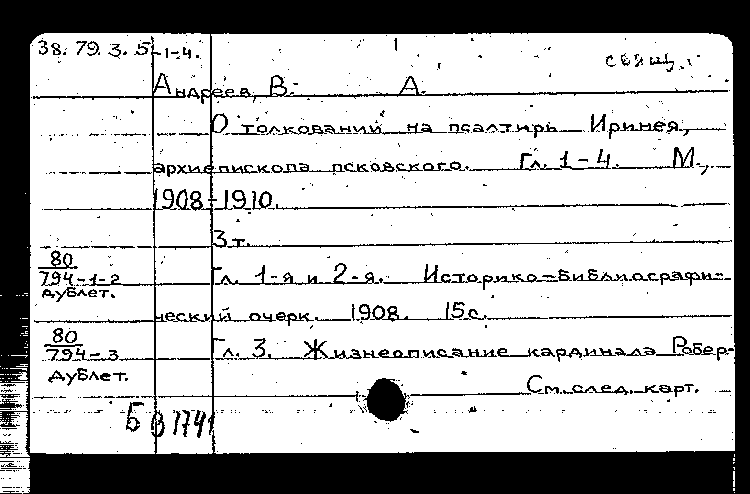 38. 79. 3. 5-1-4. 1
свящ.
Андреев, В. А.
О толковании на псалтирь Иринея,
архиепископа псковского. Гл. 1-4. М.,
1908-1910.
3 т.
80
794-1-2
дублет.
Гл. 1-я и 2-я. Историко-библиографи-
ческий очерк. 1908. 15 с.
80
794-3
дублет.
Гл. 3. Жизнеописание кардинала Робер-
См. след. карт.
Б В 1741